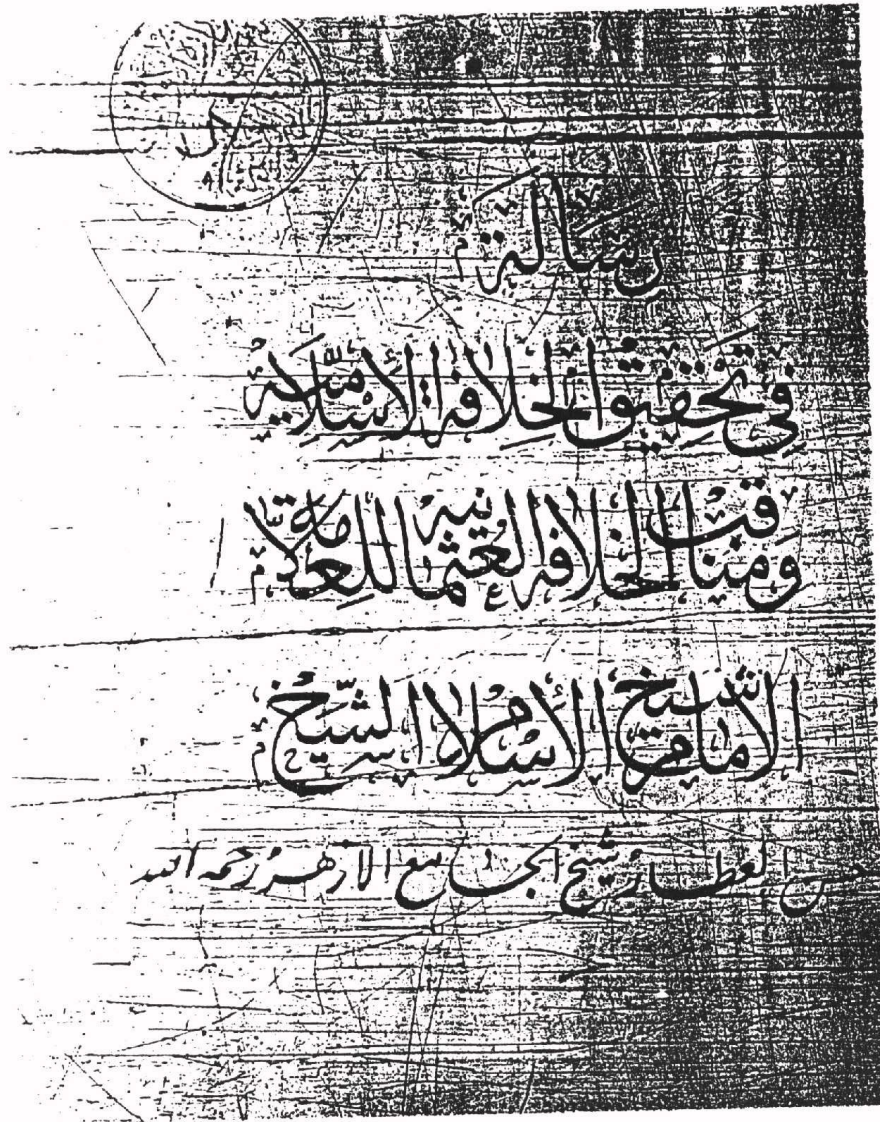 رسالة
في تحقيق الخلافة الإسلامية
ومناقب الخلافه العثمانيه للعلامة
الامام شيخ الإسلام الشيخ
حسن العطار شيخ الجامع الازهر رحمه الله